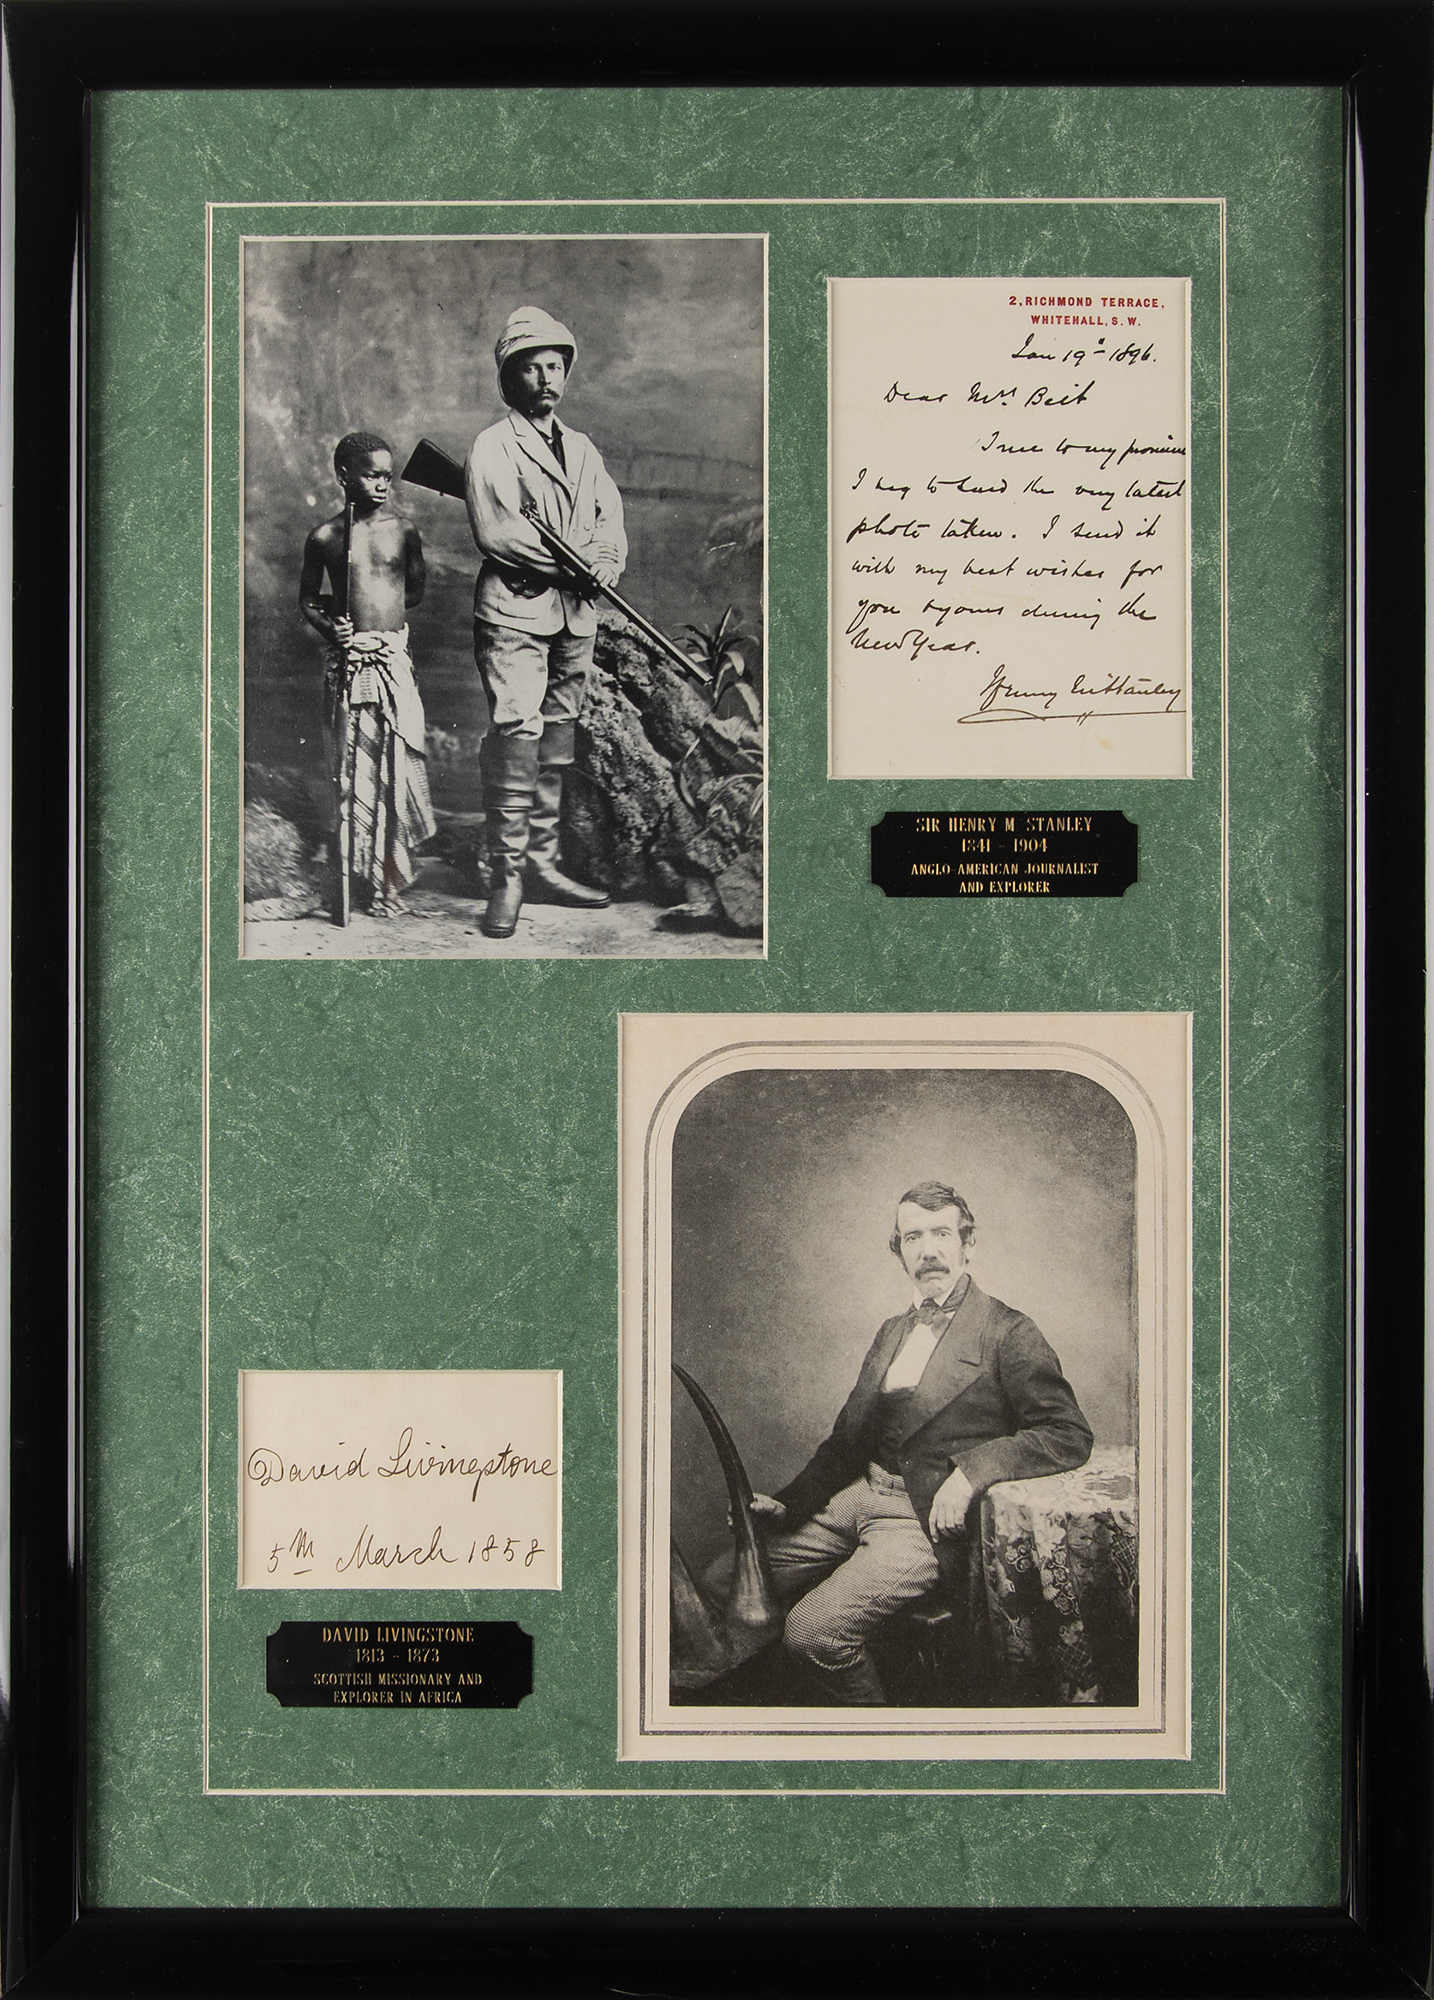 2, RICHMOND TERRACE,
WHITEHALL, S. W.
Jan 19th 1896.
Dear Mrs. Beit
True to my promise
I beg to send the very latest
photo taken. I send it
with my best wishes for
you & yours during the
New Year.
Henry M Stanley
SIR HENRY M STANLEY
1841 - 1904
ANGLO-AMERICAN JOURNALIST
AND EXPLORER
David Livingstone
5th March 1858
DAVID LIVINGSTONE
1813 - 1873
SCOTTISH MISSIONARY AND
EXPLORER IN AFRICA